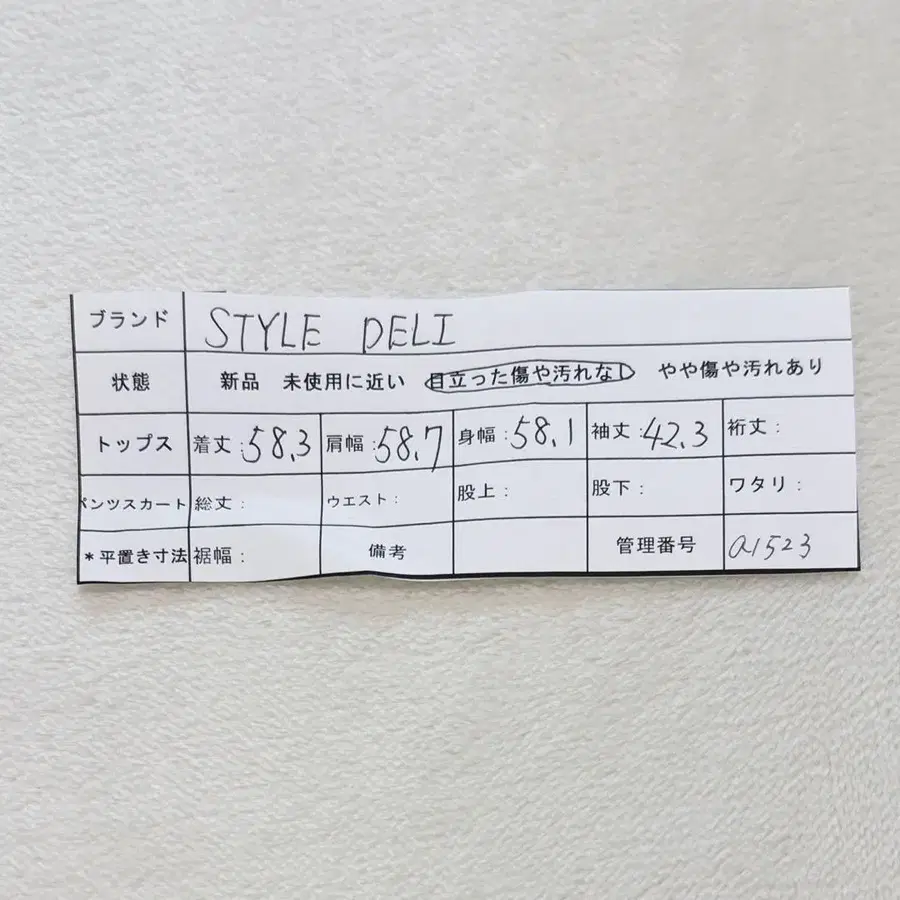 ブランド STYLE DELI
状態 新品 未使用に近い 目立った傷や汚れなし やや傷や汚れあり
トップス 着丈:58.3 肩幅:58.7 身幅:58.1 袖丈:42.3 裄丈:
パンツスカート 総丈: ウエスト: 股上: 股下: ワタリ:
*平置き寸法 裾幅: 備考 管理番号 a1523